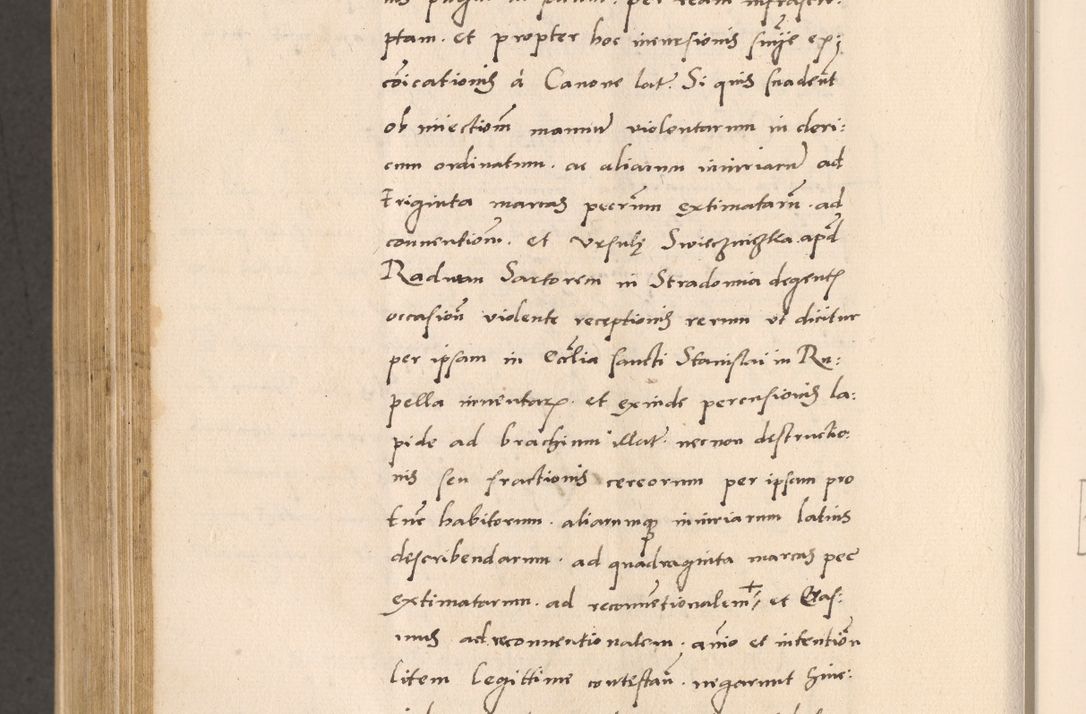 ptam. et propter hoc incursionis snīe exː
cōicationis á Canone lat. Si quis suadēt
ob iniectiōm manuū violentarum in cleriː
cum ordinatum. ac aliarum iniuriarū ad
triginta marcas pecrīum extimatarū. ad
conuentiōm. et Vrsulę Swiecznizka apd
Radwan Sartorem in Stradomia degentę
occasiōn violente receptionis rerum vt dicitur
per ipsam in Eccłia sancti Stanislai in Ruː
pella inuentarꝫ et exinde percussionis laː
pide ad brachium illat. necnon destructioː
nis seu fractionis cereorum per ipsam pro
tūc habitorum. aliarumqꝫ iniuriarum latius
describendarum. ad quadraginta marcas pec
extimatarum. ad reconuētionalem et
mus ad reconuentionalem; anīo et intentiōn
litem legittime contestań. negarunt hincː